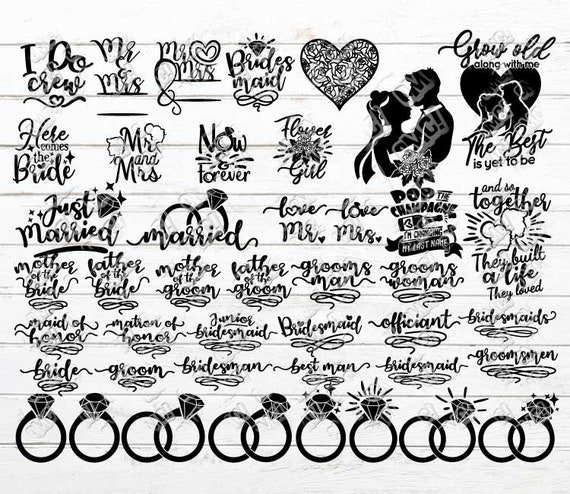 I Do
crew
Mr
&
Mrs
Mr
&
Mrs
Brides
maid
Grow old
along with me
The Best
is yet to be
Here
comes
the
Bride
Mr
and
Mrs
Now
&
forever
Flower
Girl
Just
Married
married
love
Mr.
love
Mrs.
POP THE
CHAMPAGNE
I'M CHANGING
MY LAST NAME
and so
together
They built
a life
They loved
mother
of the
bride
father
of the
bride
mother
of the
groom
father
of the
groom
grooms
man
grooms
woman
maid of
honor
matron of
honor
Junior
bridesmaid
Bridesmaid
officiant
bridesmaids
bride
groom
bridesman
best man
bridesmaid
groomsmen